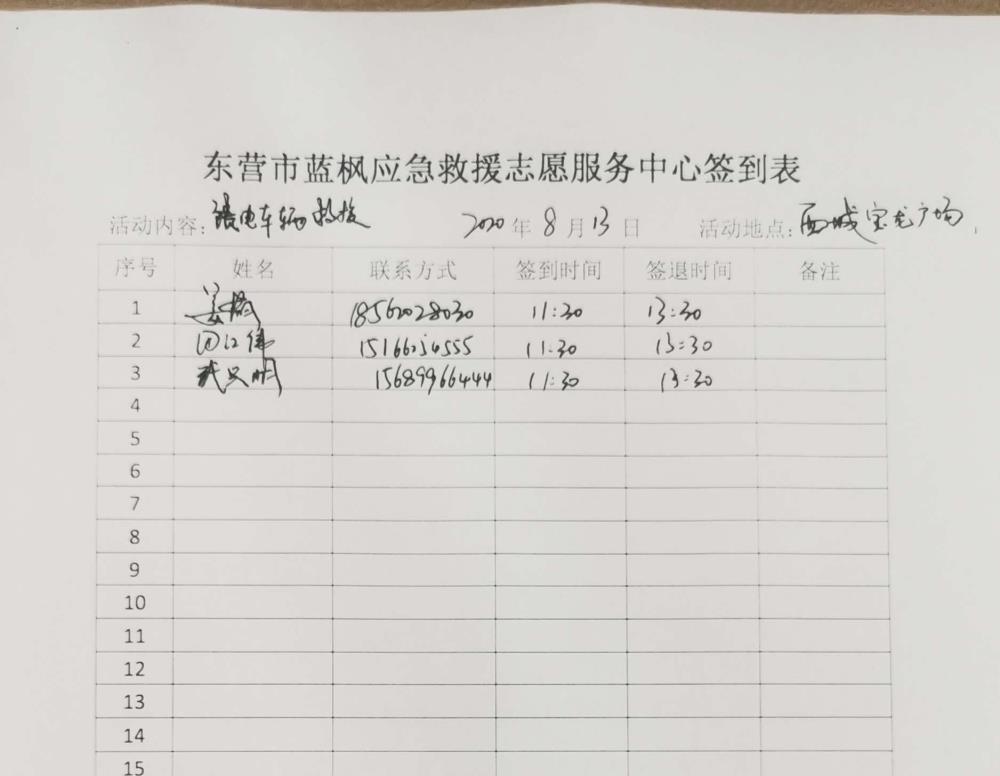 东营市蓝枫应急救援志愿服务中心签到表
活动内容: 电车辆救援 2020 年 8 月 13 日 活动地点: 西城宝龙广场
序号 姓名 联系方式 签到时间 签退时间 备注
1 姜 18562028030 11:30 13:30
2 15166234555 11:30 13:30
3 15689966444 11:30 13:30
4
5
6
7
8
9
10
11
12
13
14
15